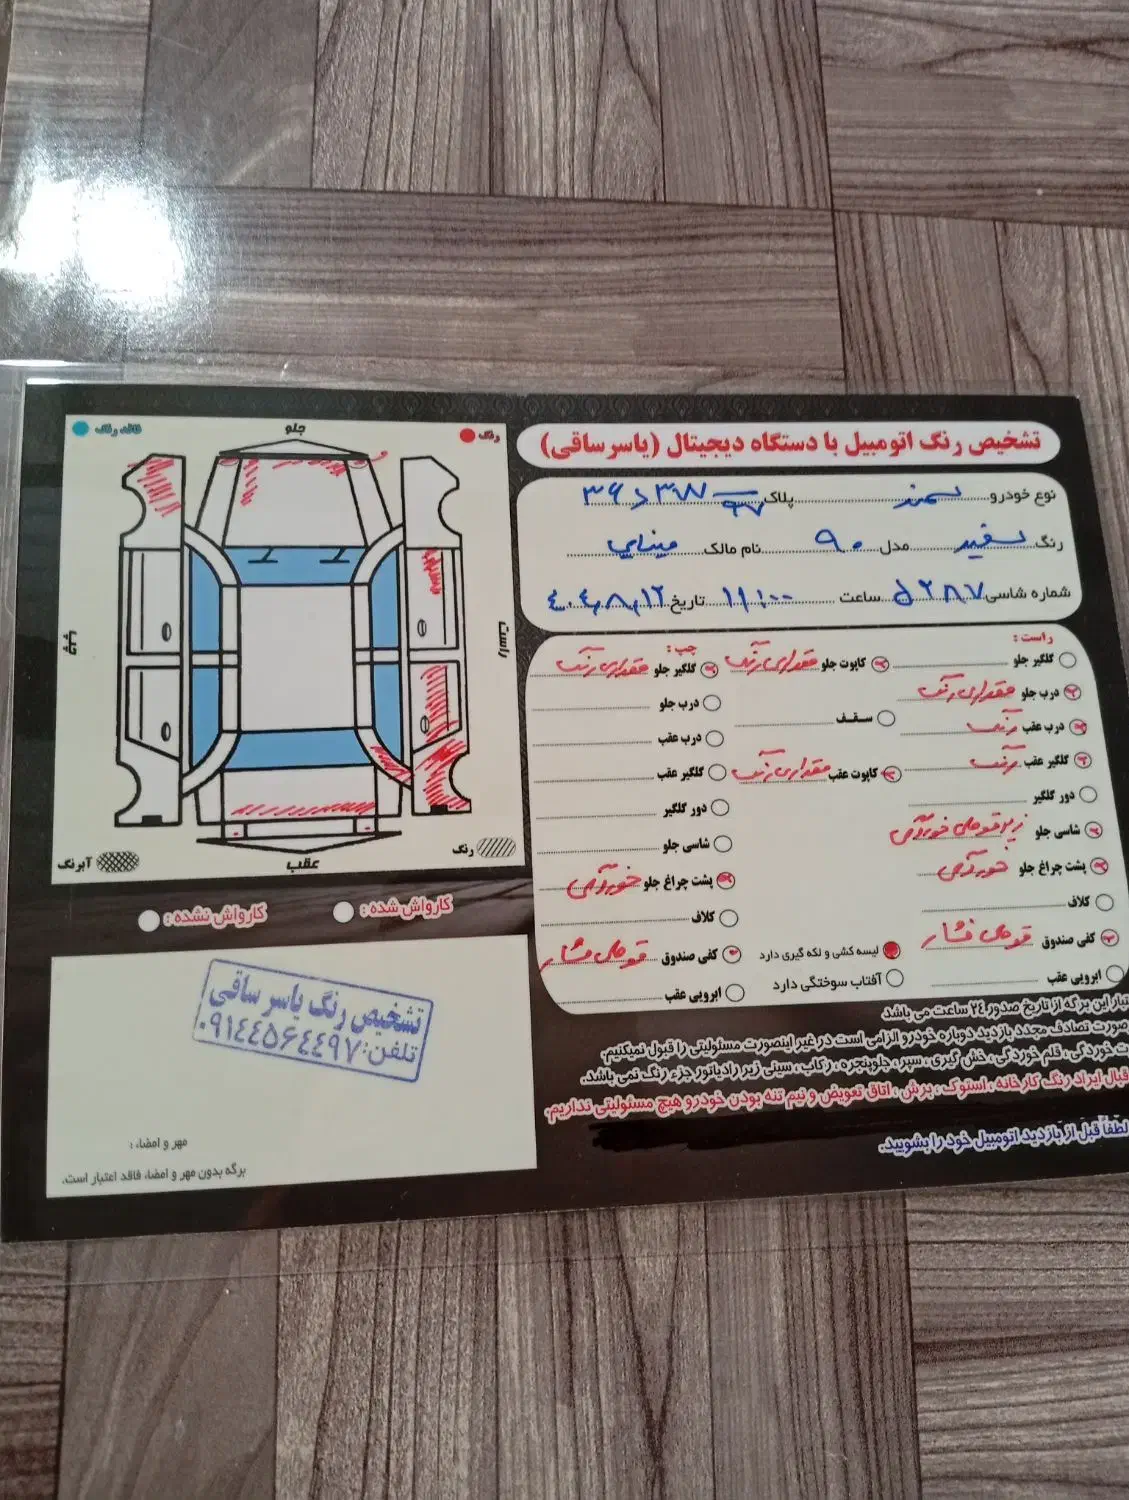 تشخیص رنگ اتومبیل با دستگاه دیجیتال (یاسر ساقی)
نوع خودرو سمند پلاک ۹۷ ۳۸۷ د ۳۶
رنگ سفید مدل ۹۰ نام مالک مینایی
شماره شاسی ۵۲۸۷ ساعت ۱۱:۰۰ تاریخ ۴۰۴,۸,۱۲
راست :
گلگیر جلو
درب جلو مقداری رنگ
درب عقب رنگ
گلگیر عقب رنگ
دور گلگیر
شاسی جلو زیر قوطی خوردگی
پشت چراغ جلو خوردگی
کلاف
کفی صندوق قوطی فشار
ابرویی عقب
کاپوت جلو مقداری رنگ
سقف
کاپوت عقب مقداری رنگ
لیسه کشی و لکه گیری دارد
آفتاب سوختگی دارد
چپ :
گلگیر جلو مقداری رنگ
درب جلو
درب عقب
گلگیر عقب
دور گلگیر
شاسی جلو
پشت چراغ جلو خوردگی
کلاف
کفی صندوق قوطی فشار
ابرویی عقب
رنگ
جلو
فاقد رنگ
راست
چپ
رنگ
عقب
آبرنگ
کارواش شده :
کارواش نشده :
تشخیص رنگ یاسر ساقی
تلفن: ۰۹۱۴۴۵۶۴۴۹۷
مهر و امضاء :
برگه بدون مهر و امضاء فاقد اعتبار است.
این برگه از تاریخ صدور ۲۴ ساعت می باشد
صورت تصادف مجدد بازدید دوباره خودرو الزامی است در غیر اینصورت مسئولیتی را قبول نمیکنیم.
خوردگی ، قلم خوردگی ، خش گیری ، سپر ، جلوپنجره ، رکاب ، سینی زیر رادیاتور جزء رنگ نمی باشد.
قبال ایراد رنگ کارخانه ، استوک ، برش ، اتاق تعویض و نیم تنه بودن خودرو هیچ مسئولیتی نداریم.
لطفاً قبل از بازدید اتومبیل خود را بشویید.